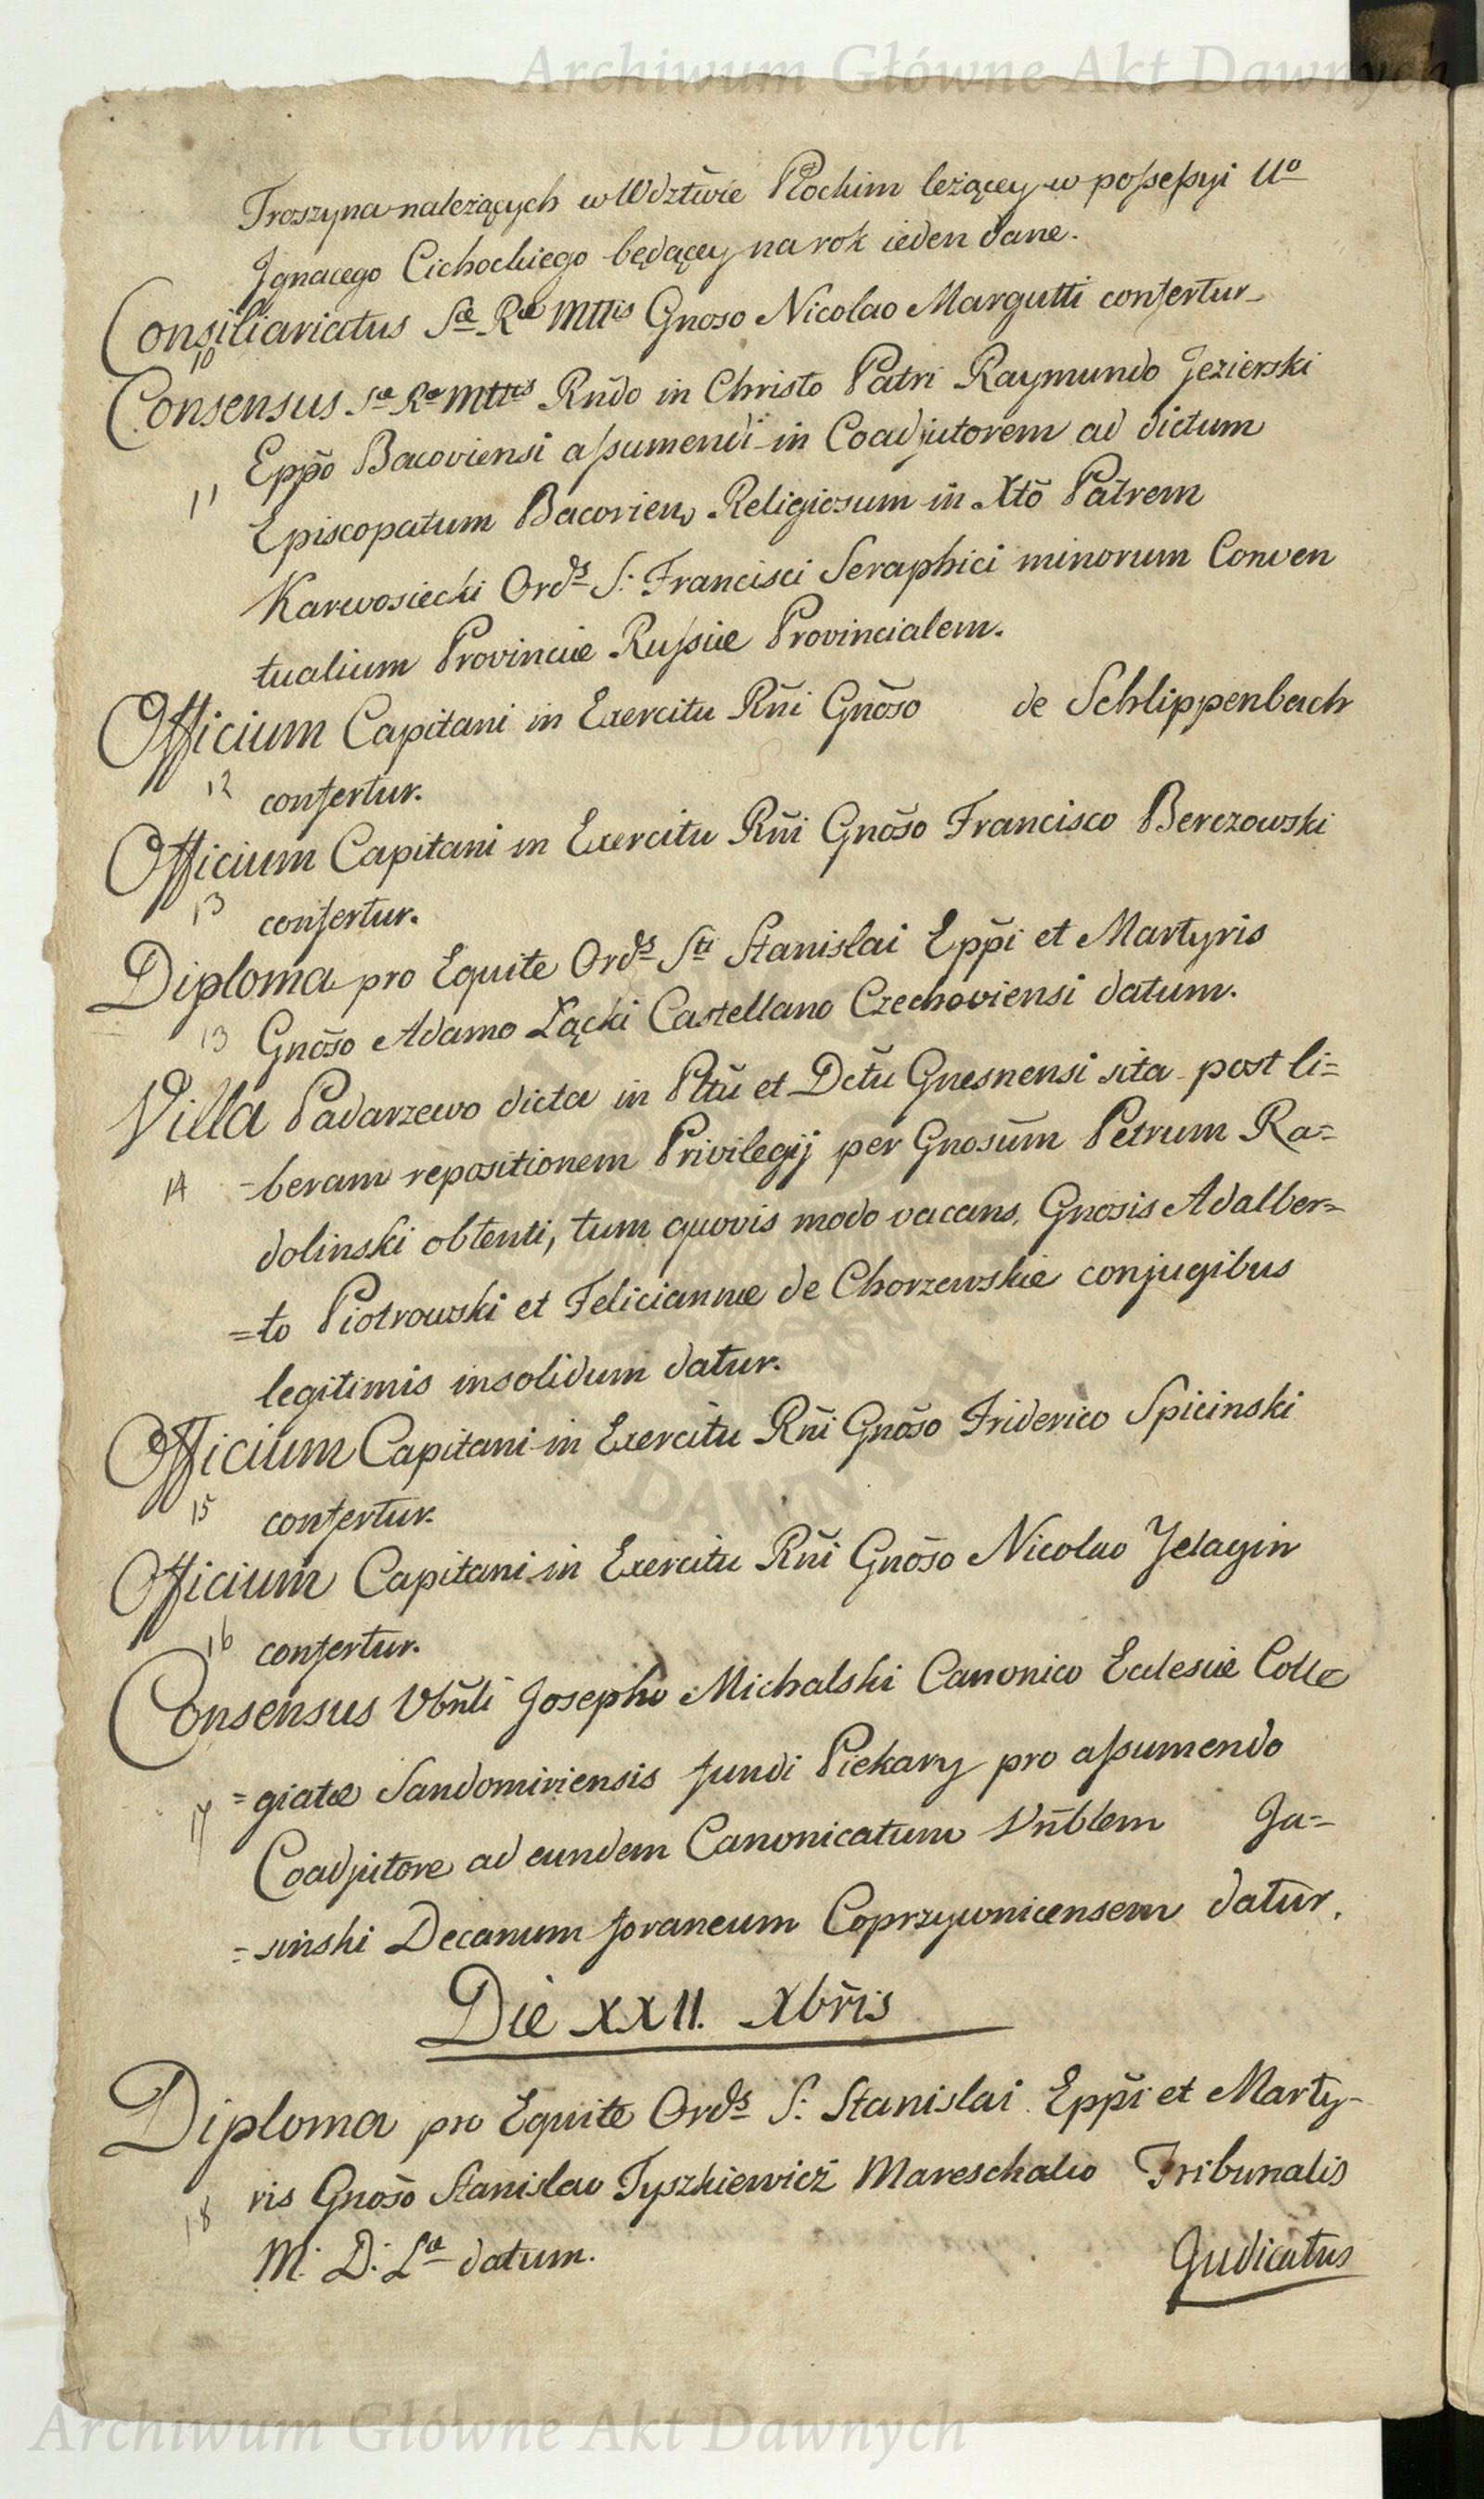 Archiwum Główne Akt Dawnych
Troszyna należących w Wdztwie Płockim leżącey w poſseſsyi Uo
Jgnacego Cichockiego będącey na rok ieden dane.
Consiliariatus Sæ Ræ Mttis Gnoso Nicolao Margutti confertur
10
Consensus Sæ Ræ Mttis Rndo in Christo Patri Raymundo Jezierski
Eppo Bacoviensi aſsumendi in Coadjutorem ad dictum
11
Episcopatum Bacovien, Religiosum in Xto Patrem
Karwosiecki Ords S: Francisci Seraphici minorum Conven
tualium Provinciæ Ruſsiæ Provincialem.
Officium Capitani in Exercitu Rñi Gnoso de Schlippenbach
12 confertur.
Officium Capitani in Exercitu Rñi Gnoso Francisco Berezowski
13 confertur.
Diploma pro Equite Ords Sti Stanislai Eppi et Martyris
13 Gnoso Adamo Łącki Castellano Czechoviensi datum.
Villa Padarzewo dicta in Pttu et Dctu Gnesnensi sita post li=
14 =beram repositionem Privilegij per Gnosum Petrum Ra=
dolinski obtenti, tum quovis modo vacans, Gnosis Adalber=
=to Piotrowski et Feliciannæ de Chorzewskie conjugibus
legitimis insolidum datur.
Officium Capitani in Exercitu Rñi Gnoso Friderico Spicinski
15 confertur.
Officium Capitani in Exercitu Rñi Gnoso Nicolao Jelagin
16 confertur.
Consensus Vbnli Josepho Michalski Canonico Eclesiæ Colle
17 =giatæ Sandomiriensis fundi Piekary pro aſsumendo
Coadjutore ad eundem Canonicatum Vñblem Ja=
=sinski Decanum foraneum Coprzywnicensem datur.
Die XXII. Xbris
Diploma pro Equite Ords S: Stanislai Eppi et Marty-
18 ris Gnoso Stanislao Tyszkiewicz Mareschalco Tribunalis
M: D: Læ datum.
Judicatus
Archiwum Główne Akt Dawnych